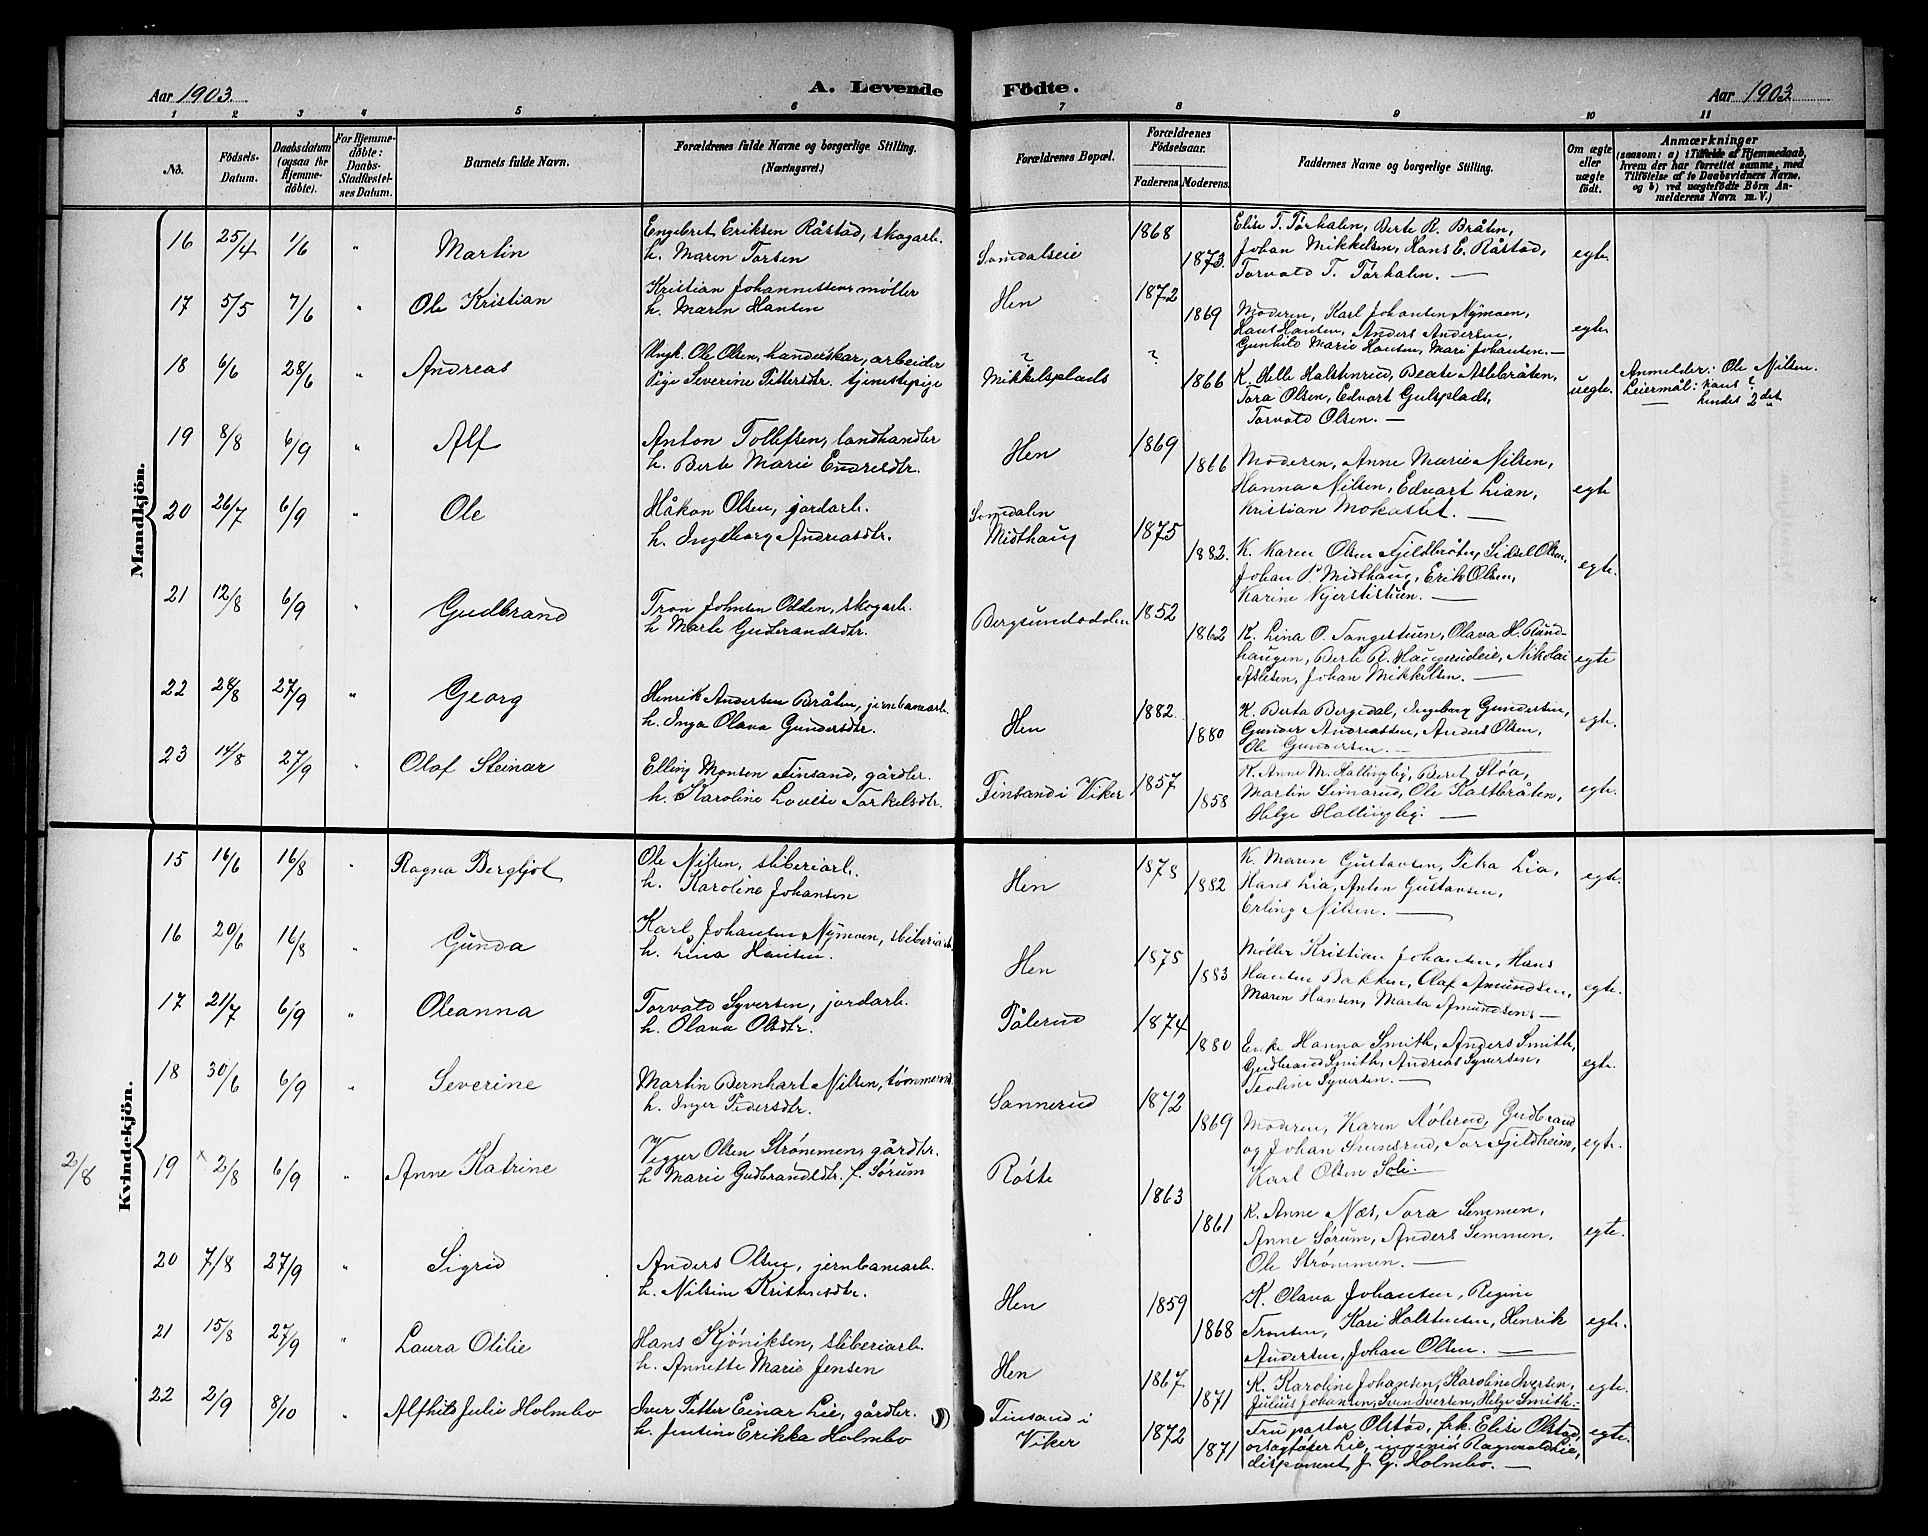 Aar 1903.
A. Levende Födte.
Aar 1903
1 2 3 4 5 6 7 8 9 10 11
No.
Födsels-Datum.
Daabsdatum (ogsaa for Hjemmedöbte).
For Hjemmedöbte: Daabs-Stadfæstelses Datum.
Barnets fulde Navn.
Forældrenes fulde Navne og borgerlige Stilling.
(Næringsvei.)
Forældrenes Bopæl.
Forældrenes Födselsaar.
Faderens. Moderens.
Faddernes Navne og borgerlige Stilling.
Om ægte eller uægte födt.
Anmærkninger
(saasom: a) i Tilfælde af Hjemmedaab,
hvem der har forrettet samme, med
Tilföielse af to Daabsvidners Navne,
og b) ved uægtefödte Börn An-
melderens Navn m. V.)
Mandkjön.
16 25/4 1/6 " Martin
Engebret Eriksen Råstad, skogarb.
h. Maren Torsen
Somdalseie 1868 1873.
Elise T. Tørhalen, Berte R. Bråten,
Johan Mikkelsen, Hans E. Råstad,
Torvald T. Tørhalen. —
egte.
17 5/5 7/6 " Ole Kristian
Kristian Johannessen, møller
h. Maren Hansen
Hen 1872 1869
Moderen, Karl Johansen Nymoen,
Hans Hansen, Anders Andersen,
Gunhild Marie Hansen, Mari Johansen. —
egte.
18 6/6 28/6 " Andreas
Ungk. Ole Olsen, handelskar, arbeider
Pige Severine Pettersdtr. tjenestepige
? Mikkelsplads ? 1866
K. Helle Halstenrud, Beate Aslebråten,
Tora Olsen, Edvart Gulsplads,
Torvald Olsen. —
uegte.
Anmelder: Ole Nilsen.
Leiermål: hans ?
hendes 2det
19 8/8 6/9 " Alf
Anton Tollefsen, landhandler
h. Berte Marie Endresdtr.
Hen 1869 1866
Moderen, Anne Marie Nilsen,
Hanna Nilsen, Edvart Lian,
Kristian Mokastet. —
egte
20 26/7 6/9 " Ole
Håkon Olsen, jordarb.
h. Ingeborg Andreasdtr.
Somdalen
Midthaug 1875 1882.
K. Karen Olsen Fjeldbråten, Sidsel Olsen,
Johan P. Midthaug, Erik Olsen,
Karine Kjerstistuen. —
egte.
21 12/8 6/9 " Gudbrand
Tron Johnsen Odden, skogarb.
h. Marte Gudbrandsdtr.
Bergsundodden 1852 1862
K. Lina O. Tangestuen, Olava H. Rund-
haugen, Berte R. Haugerudeie, Nikolai
Aslesen, Johan Mikkelsen. —
egte
22 28/8 27/9 " Georg
Henrik Andersen Bråten, jernbanearb.
h. Inga Olava Gundersdtr.
Hen 1882. 1880
K. Berta Bergedal, Ingeborg Gundersen,
Gunder Andreassen, Anders Olsen,
Ole Gundersen. —
egte.
23 14/8 27/9 " Olaf Steinar
Elling Monsen Finsand, gårdbr.
h. Karoline Lovise Torkelsdtr.
Finsand i Viker 1857 1858
K. Anne M. Hallingby, Beret Støa,
Martin Semerud, Ole Kastbråten,
Helge Hallingby. —
egte.
Kvindekjön.
15 16/6 16/8 " Ragna Bergljot
Ole Nilsen, sliberiarb.
h. Karoline Johansen
Hen 1878 1882
K. Maren Gustavsen, Petra Lia,
Hans Lia, Anton Gustavsen,
Erling Nilsen. —
egte.
16 20/6 16/8 " Gunda
Karl Johansen Nymoen, sliberiarb.
h. Lina Hansen.
Hen 1875 1883
Møller Kristian Johansen, Hans
Hansen Bakken, Olaf Amundsen,
Maren Hansen, Marta Amundsen. —
egte.
17 21/7 6/9 " Oleanna
Torvald Syversen, jordarb.
h. Olava Olsdtr.
Pålerud 1874 1880
Enke Hanna Smith, Anders Smith,
Gudbrand Smith, Andreas Syversen,
Teoline Syversen. —
egte.
18 30/6 6/9 " Severine
Martin Bernhart Nilsen, tømmerm.
h. Inger Pedersdtr.
Sannerud 1872 1869
Moderen, Karen Aslerud, Gudbrand
og Johan Sundsrud, Tor Fjeldheim,
Karl Olsen Soli. —
egte.
2/8
19 x 2/8 6/9 " Anne Katrine
Vegger Olsen Strømmen, gårdbr.
h. Marie Gudbrandsdtr. f. Sørum
Røste 1863 1861
K. Anne Næs, Tora Semmen,
Anne Sørum, Anders Semmen,
Ole Strømmen. —
egte.
20 7/8 27/9 " Sigrid
Anders Olsen, jernbanearb.
h. Nilsine Kristensdtr.
Hen 1859 1868
K. Olava Johansen, Regine
Tronsen, Kari Halstensen, Henrik
Andersen, Johan Olsen. —
egte.
21 15/8 27/9 " Laura Otilie
Hans Kjøniksen, sliberiarb.
h. Annette Marie Jensen
Hen 1867 1871
K. Karoline Johansen, Karoline Iversen,
Julius Johansen, Sven Iversen, Helge Smith.
egte.
22 2/9 8/10 " Alfhild Julie Holmbo
Iver Petter Einar Lie, gårdbr.
h. Jensine Erikka Holmbo
Finsand i
Viker 1872 1871
Fru pastor Olstad, frk. Elise Olstad,
Lie, Ragnvald Lie,
disponent J. G. Holmbo. —
egte.